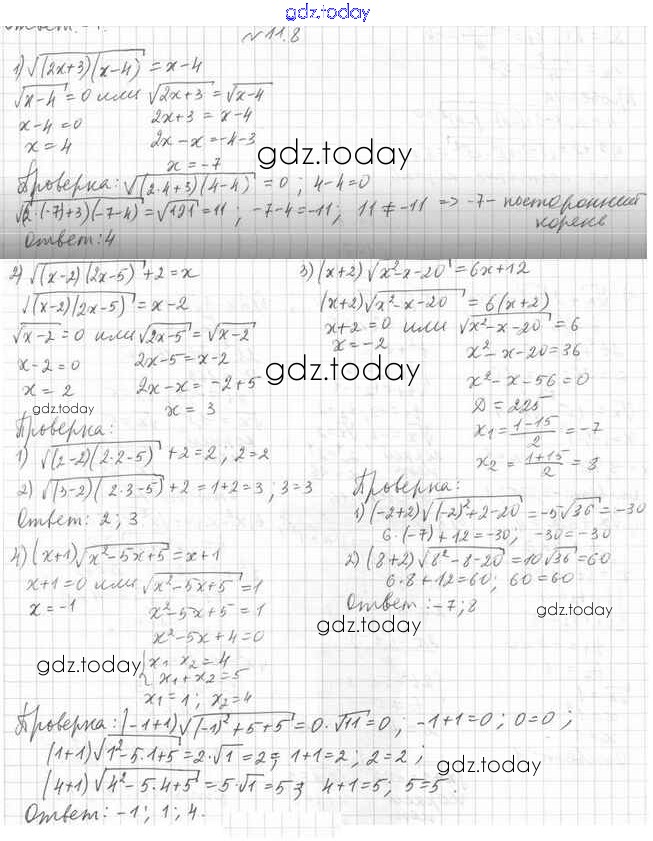 gdz.today
№ 11.8
1) √((2x+3)(x-4)) = x-4
√(x-4) = 0 или √(2x+3) = √(x-4)
x-4=0 2x+3 = x-4
x=4 2x-x=-4-3
x=-7
gdz.today
Проверка: √((2·4+3)(4-4)) = 0; 4-4=0
√(2·(-7)+3)(-7-4) = √121 = 11; -7-4=-11; 11≠-11 => -7- посторонний
корень
Ответ: 4
2) √((x-2)(2x-5)) +2 = x
√((x-2)(2x-5)) = x-2
√(x-2) = 0 или √(2x-5) = √(x-2)
x-2=0 2x-5=x-2
x=2 2x-x=-2+5
x = 3
gdz.today
gdz.today
Проверка:
1) √((2-2)(2·2-5)) +2=2; 2=2
2) √((3-2)(2·3-5)) +2=1+2=3; 3=3
Ответ: 2; 3
3) (x+2)√(x²-x-20) = 6x+12
(x+2)√(x²-x-20) = 6(x+2)
x+2=0 или √(x²-x-20) = 6
x=-2 x²-x-20=36
x²-x-56=0
D = 225
x₁ = (1-15)/2 = -7
x₂ = (1+15)/2 = 8
Проверка:
1) (-2+2)√((-2)²+2-20) = -5√36 = -30
6·(-7)+12=-30; -30=-30
2) (8+2)√(8²-8-20) = 10√36 = 60
6·8+12=60; 60=60
Ответ: -7; 8
gdz.today
gdz.today
4) (x+1)√(x²-5x+5) = x+1
x+1=0 или √(x²-5x+5) = 1
x=-1 x²-5x+5=1
x²-5x+4=0
{x₁ x₂=4
x₁+x₂=5
x₁=1; x₂=4
gdz.today
Проверка: (-1+1)√((-1)²+5+5) = 0·√11=0; -1+1=0; 0=0;
(1+1)√(1²-5·1+5) = 2·√1=2; 1+1=2; 2=2;
(4+1)√(4²-5·4+5) = 5·√1=5; 4+1=5; 5=5.
gdz.today
Ответ: -1; 1; 4.